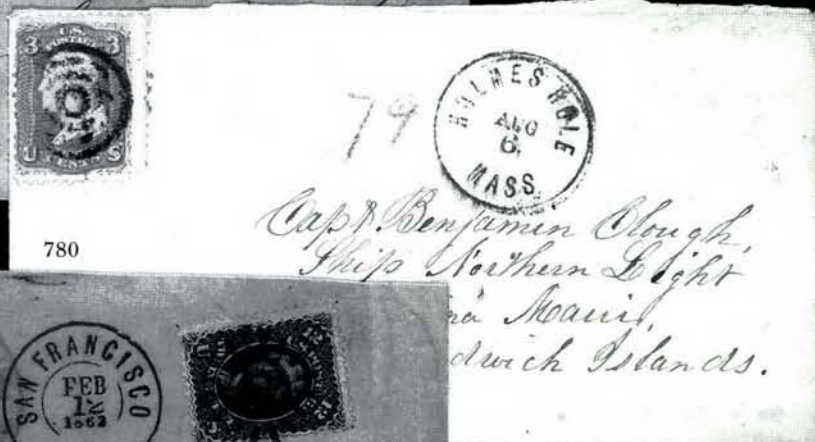 3 U.S. 3
POSTAGE
U CENTS S
79
HOLMES HOLE
AUG
6
MASS.
Capt. Benjamin Clough,
Ship Northern Light
na Maui,
dwich Islands.
780
SAN FRANCISCO
FEB
12
1863
12
12
U